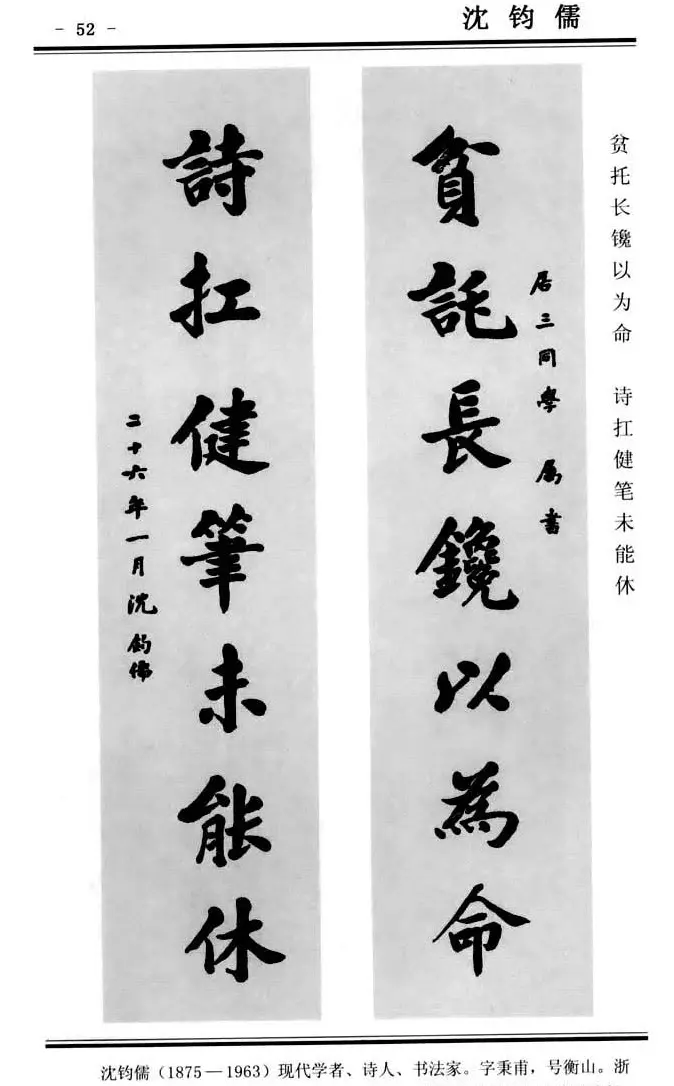 - 52 -
沈钧儒
贫托长镵以为命 诗扛健笔未能休
居三同學 属書
貧託長鑱以為命
詩扛健筆未能休
二十六年一月沈鈞儒
沈钧儒（1875—1963）现代学者、诗人、书法家。字秉甫，号衡山。浙